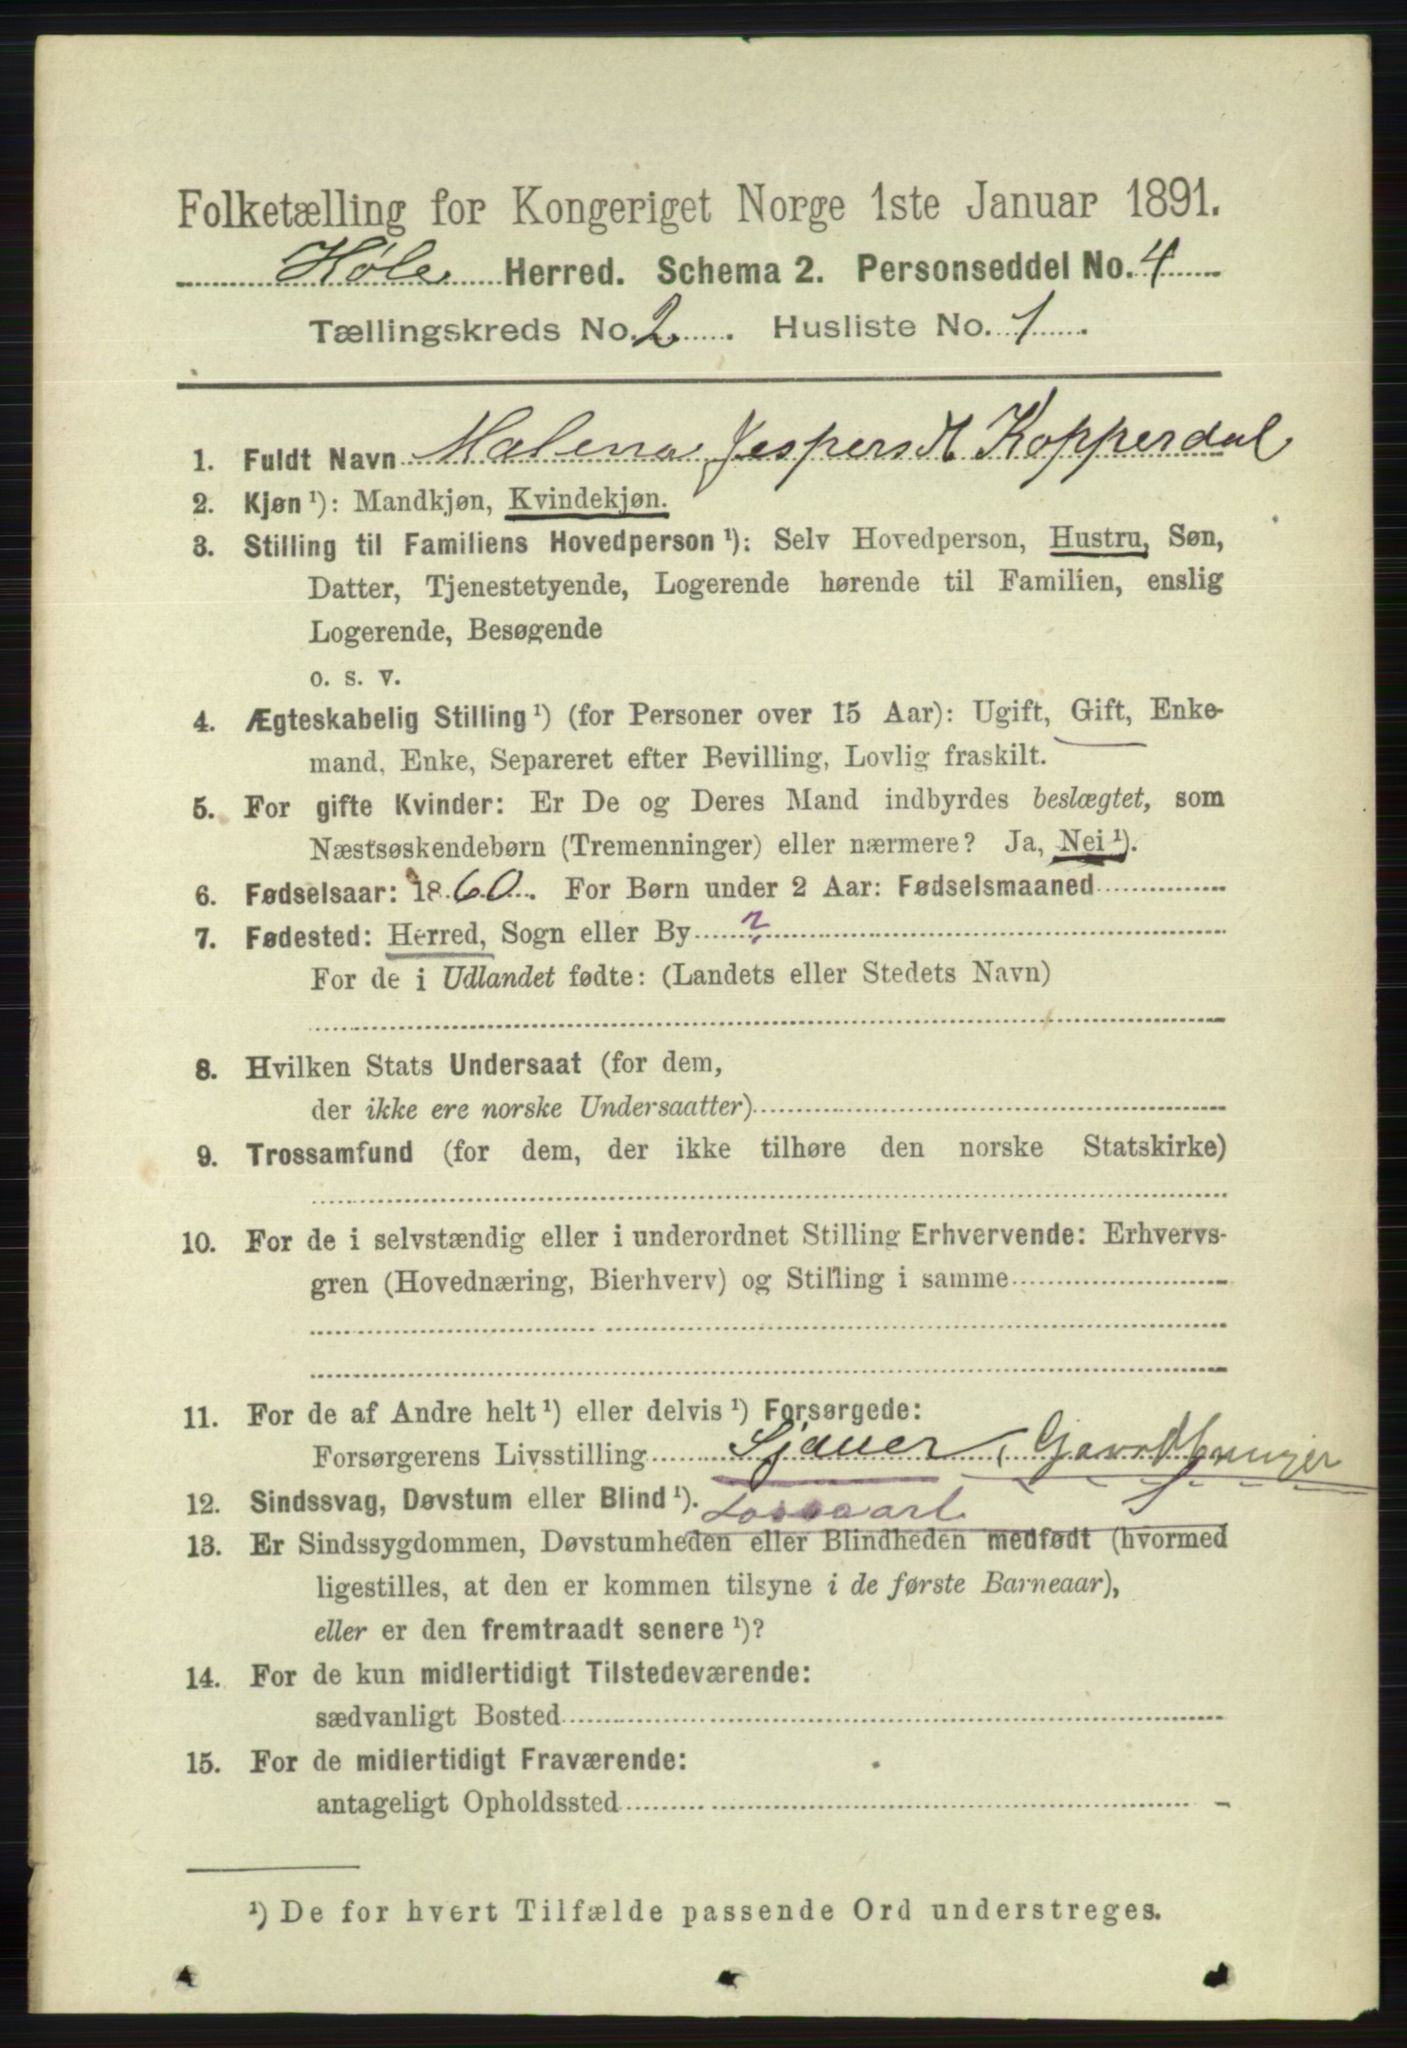 Folketælling for Kongeriget Norge 1ste Januar 1891.
Høle Herred. Schema 2. Personseddel No. 4
Tællingskreds No. 2 . Husliste No. 1
1. Fuldt Navn Malena Jespersdt Kopperdal
2. Kjøn ¹): Mandkjøn, Kvindekjøn.
3. Stilling til Familiens Hovedperson ¹): Selv Hovedperson, Hustru, Søn,
Datter, Tjenestetyende, Logerende hørende til Familien, enslig
Logerende, Besøgende
o. s. v.
4. Ægteskabelig Stilling ¹) (for Personer over 15 Aar): Ugift, Gift, Enke-
mand, Enke, Separeret efter Bevilling, Lovlig fraskilt.
5. For gifte Kvinder: Er De og Deres Mand indbyrdes beslægtet, som
Næstsøskendebørn (Tremenninger) eller nærmere? Ja, Nei ¹).
6. Fødselsaar: 1860. For Børn under 2 Aar: Fødselsmaaned
7. Fødested: Herred, Sogn eller By ?
For de i Udlandet fødte: (Landets eller Stedets Navn)
8. Hvilken Stats Undersaat (for dem,
der ikke ere norske Undersaatter)
9. Trossamfund (for dem, der ikke tilhøre den norske Statskirke)
10. For de i selvstændig eller i underordnet Stilling Erhvervende: Erhvervs-
gren (Hovednæring, Bierhverv) og Stilling i samme
11. For de af Andre helt ¹) eller delvis ¹) Forsørgede:
Forsørgerens Livsstilling Sjauer, Gaardbruger
12. Sindssvag, Døvstum eller Blind ¹).
13. Er Sindssygdommen, Døvstumheden eller Blindheden medfødt (hvormed
ligestilles, at den er kommen tilsyne i de første Barneaar),
eller er den fremtraadt senere ¹)?
14. For de kun midlertidigt Tilstedeværende:
sædvanligt Bosted
15. For de midlertidigt Fraværende:
antageligt Opholdssted
¹) De for hvert Tilfælde passende Ord understreges.